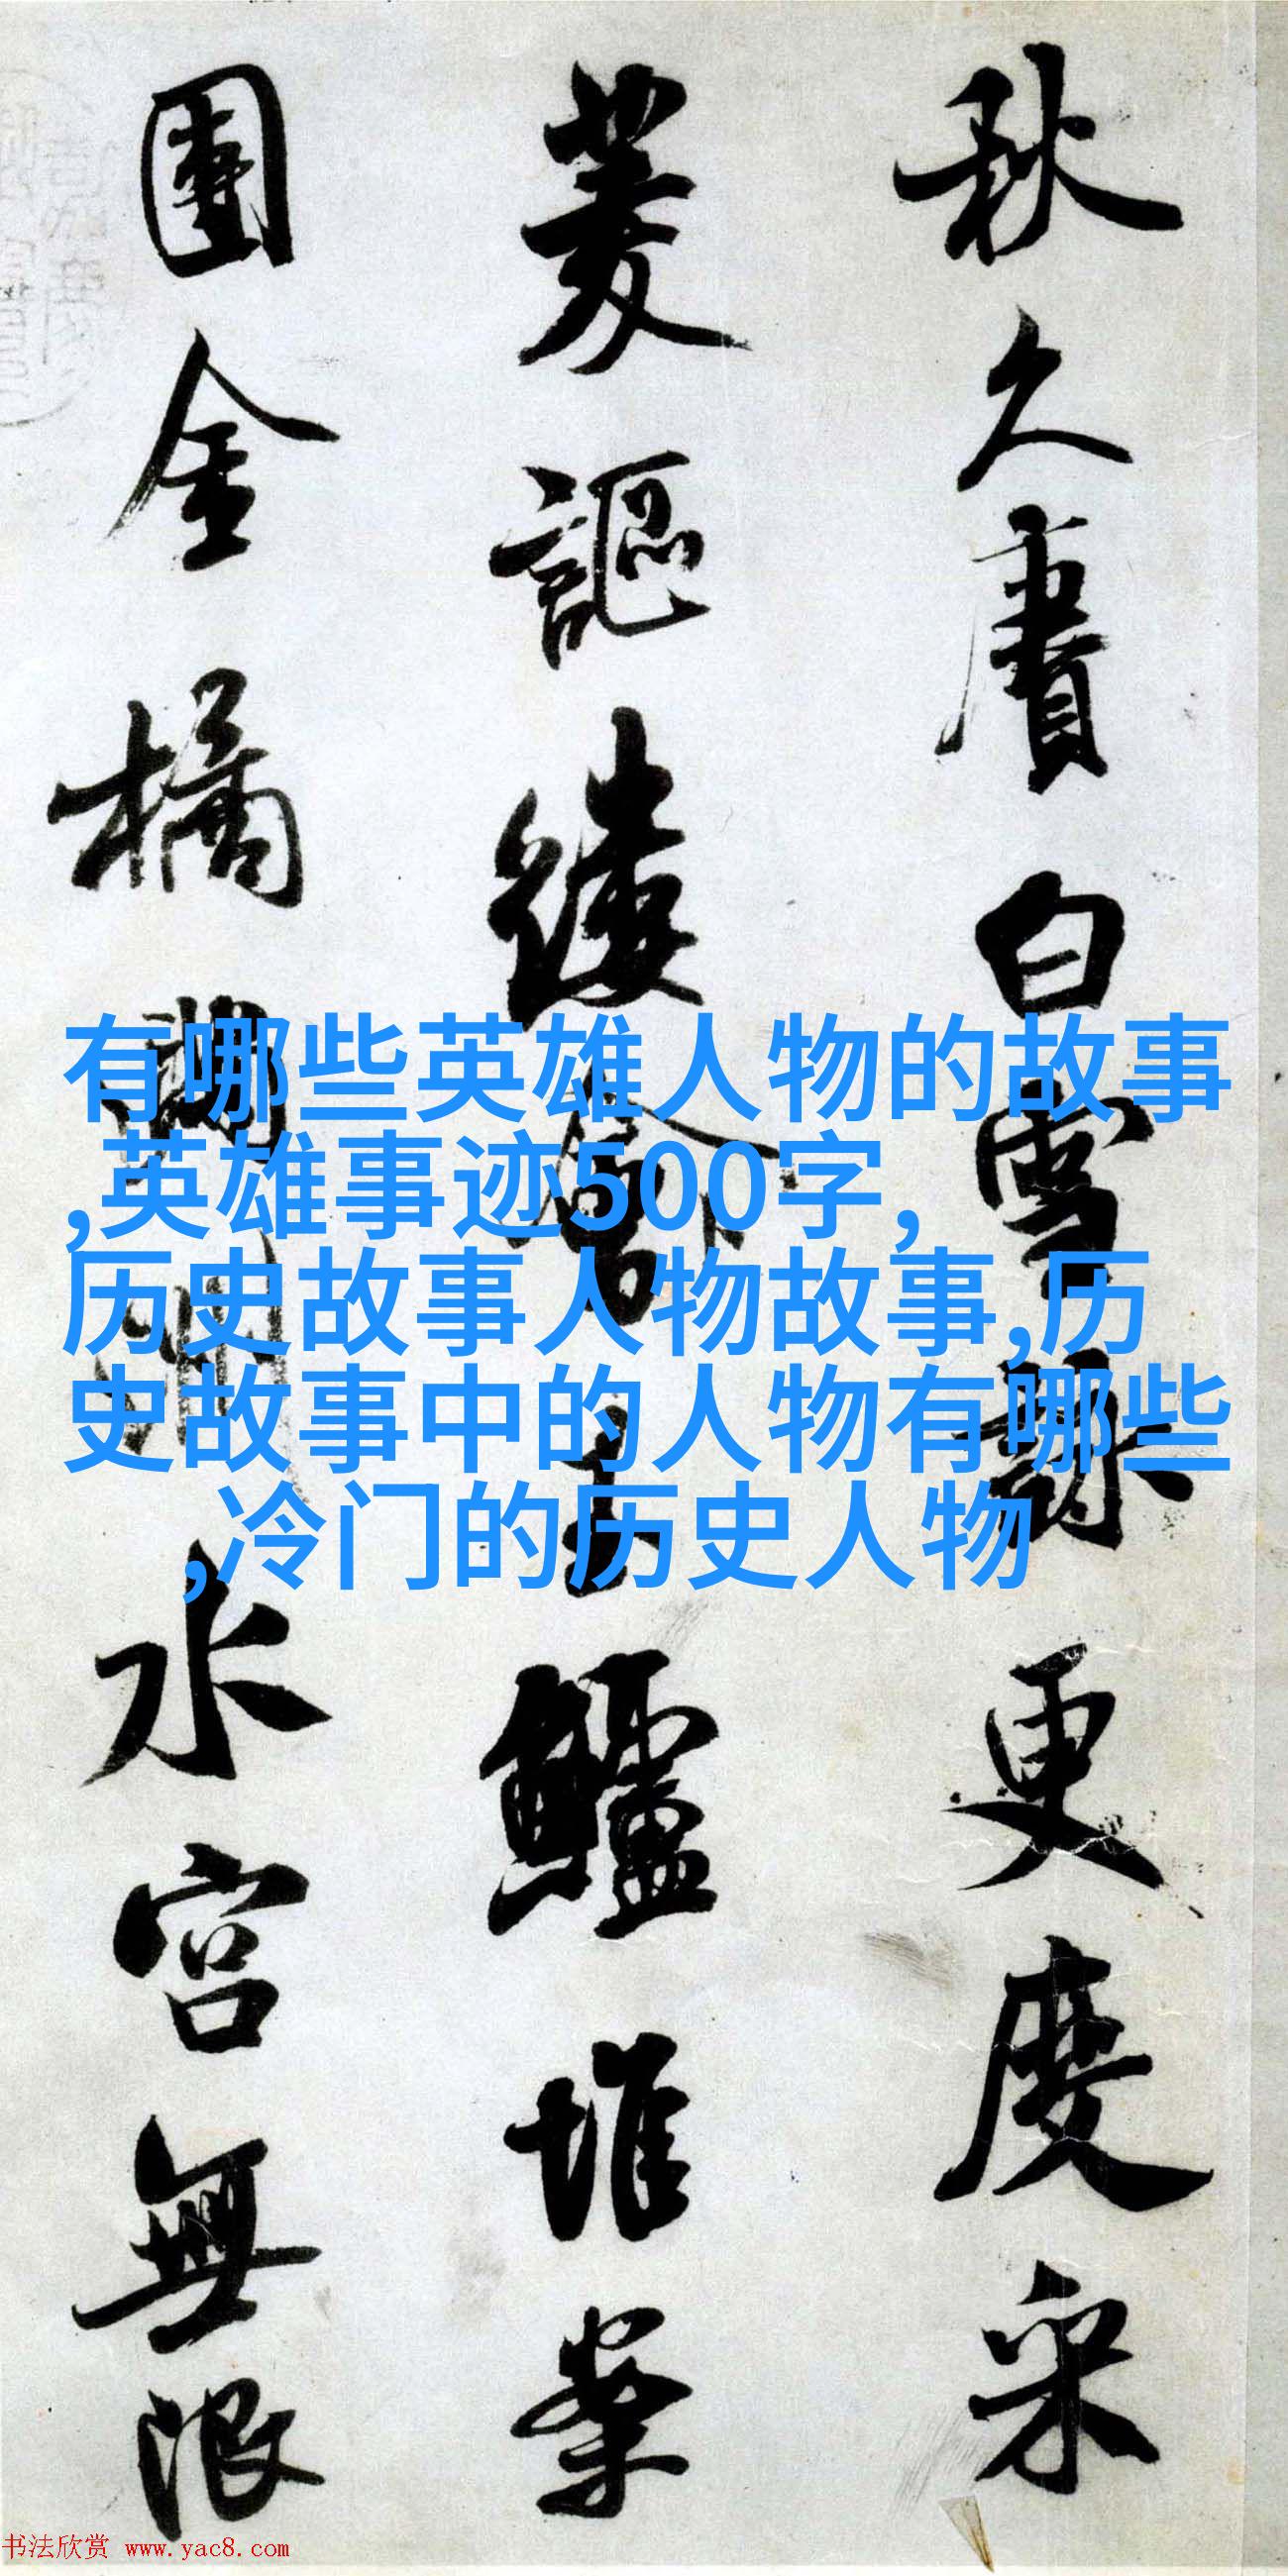 秋久賡白雪詠更度采
菱謳縷會玉鱸堆案
團金橘滿洲水宮無限
有哪些英雄人物的故事
,英雄事迹500字,
历史故事人物故事,历
史故事中的人物有哪些
,冷门的历史人物
书法欣赏 www.yac8.com